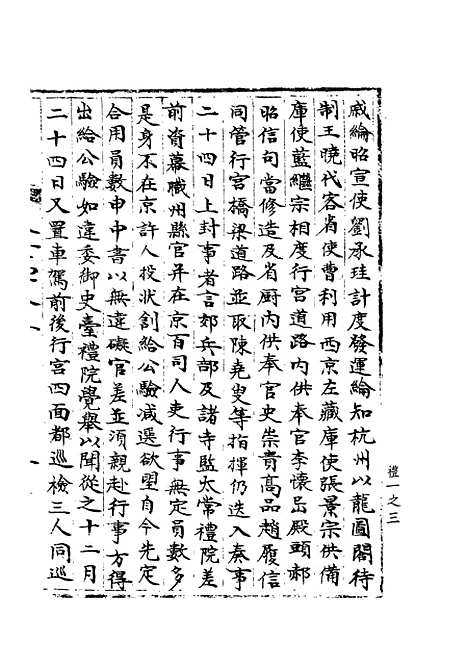 戚綸昭宣使劉承珪計度發運綸知杭州以龍圖閣待
制王曉代客省使曹利用西京左藏庫使張景宗供備
庫使藍繼宗相度行宮道路內供奉官李懷岊殿頭郝
昭信句當修造及省厨內供奉官史崇貴高品趙履信
同管行宮橋梁道路並取陳堯叟等指揮仍迭入奏事
二十四日上封事者言郊兵部及諸寺監太常禮院差
前資幕職州縣官并在京百司人吏行事無定員數多
是身不在京許人投狀創給公驗减選欲望自今先定
合用員數申中書以無違礙官差並須親赴行事方得
出給公驗如違委御史臺禮院覺舉以聞從之十二月
二十四日又置車駕前後行宮四面都巡檢三人同巡
禮一之三